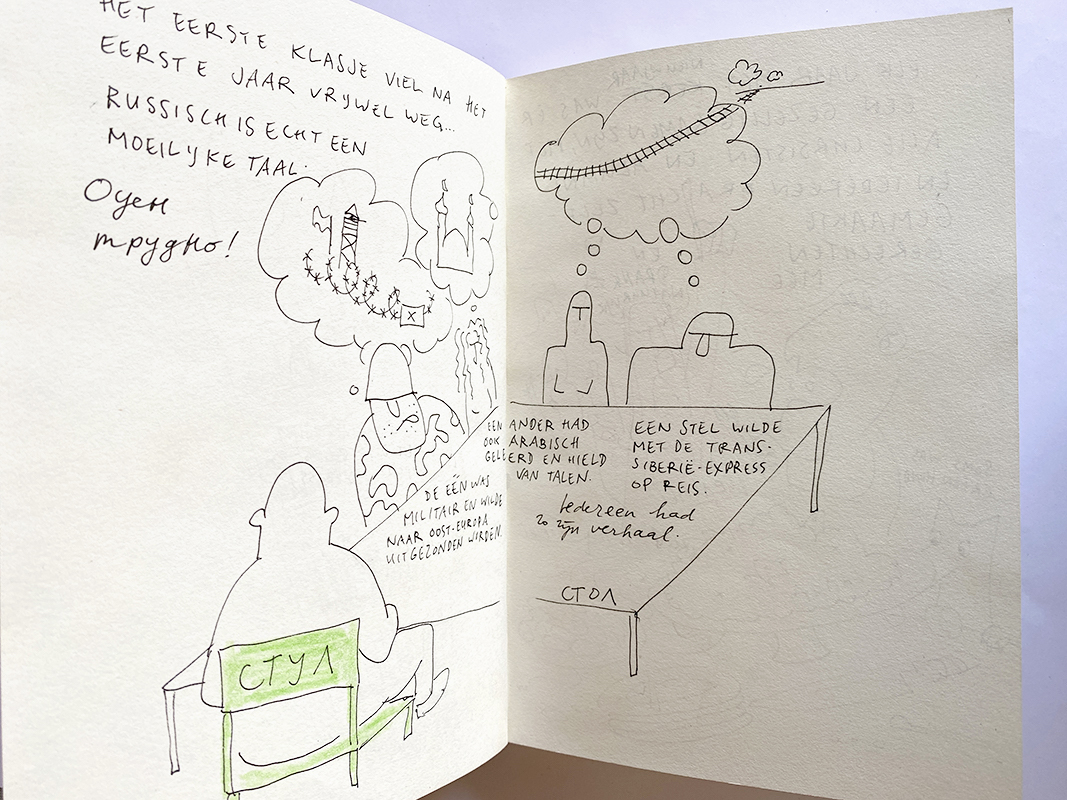 HET EERSTE KLASJE VIEL NA HET
EERSTE JAAR VRIJWEL WEG...
RUSSISCH IS ECHT EEN
MOEILIJKE TAAL.
Очен
трудно!
X
DE EÉN WAS
MILITAIR EN WILDE
NAAR OOST-EUROPA
UITGEZONDEN WORDEN.
EEN ANDER HAD
OOK ARABISCH
GELEERD EN HIELD
VAN TALEN.
EEN STEL WILDE
MET DE TRANS-
SIBERIË-EXPRESS
OP REIS.
Iedereen had
zo zijn verhaal.
СТОЛ
СТУЛ